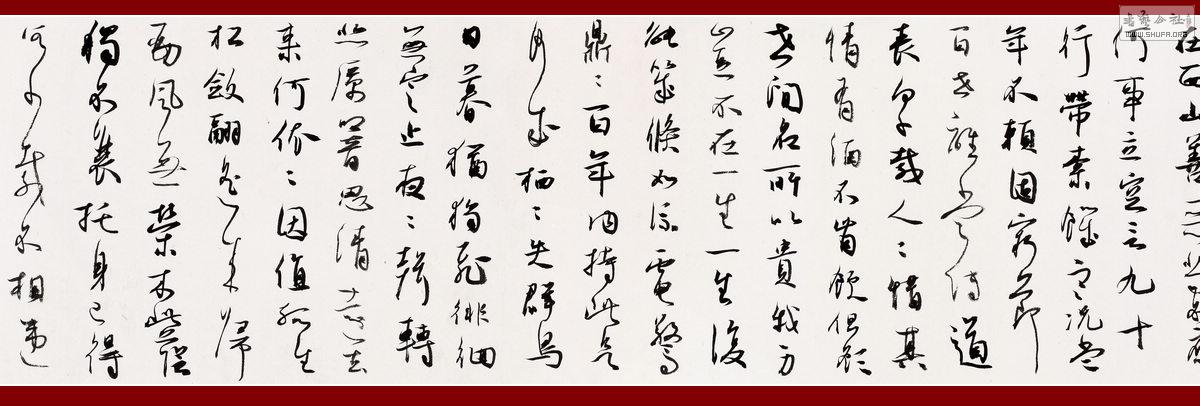 在西山善惡
何事立空言九十
行帶索飢寒況當
年不賴固窮節
百世誰當傳道
喪向千載人〻惜其
情有酒不肯飲但顧
世間名所以貴我身
豈不在一生一生復
能幾倏如流電驚
鼎〻百年內持此欲
何成栖〻失群鳥
日暮猶獨飛徘徊
無定止夜〻聲轉
悲厲響思清遠去
來何依〻因值孤生
松斂翮遙來歸
勁風無榮木此蔭
獨不衰托身已得
所千載不相違
WWW.SHUFA.ORG